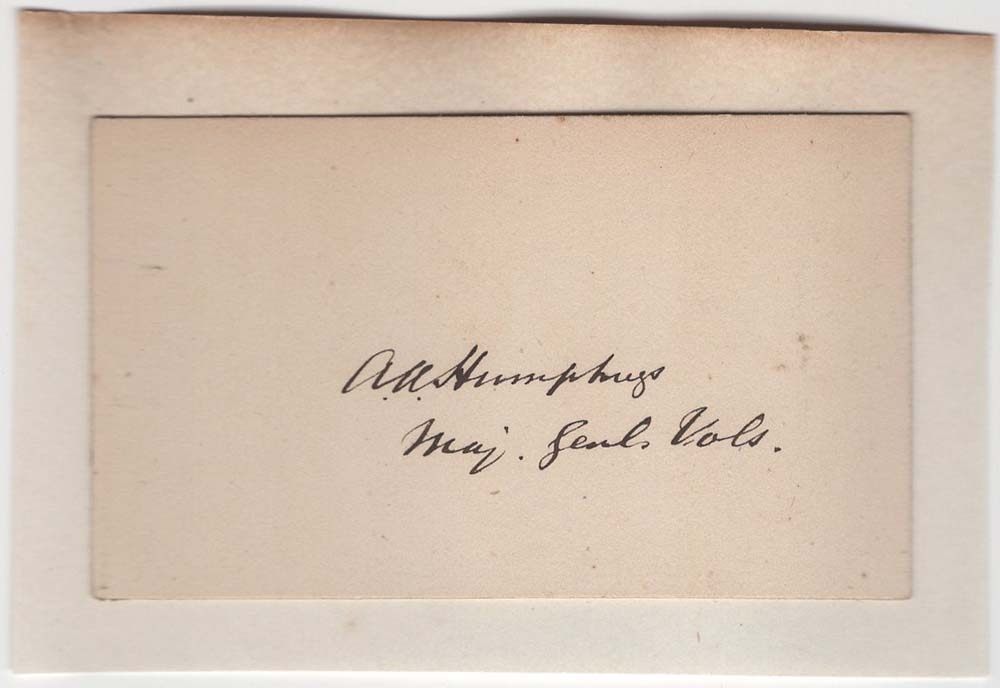 A.A. Humphreys
Maj. Genl. Vols.